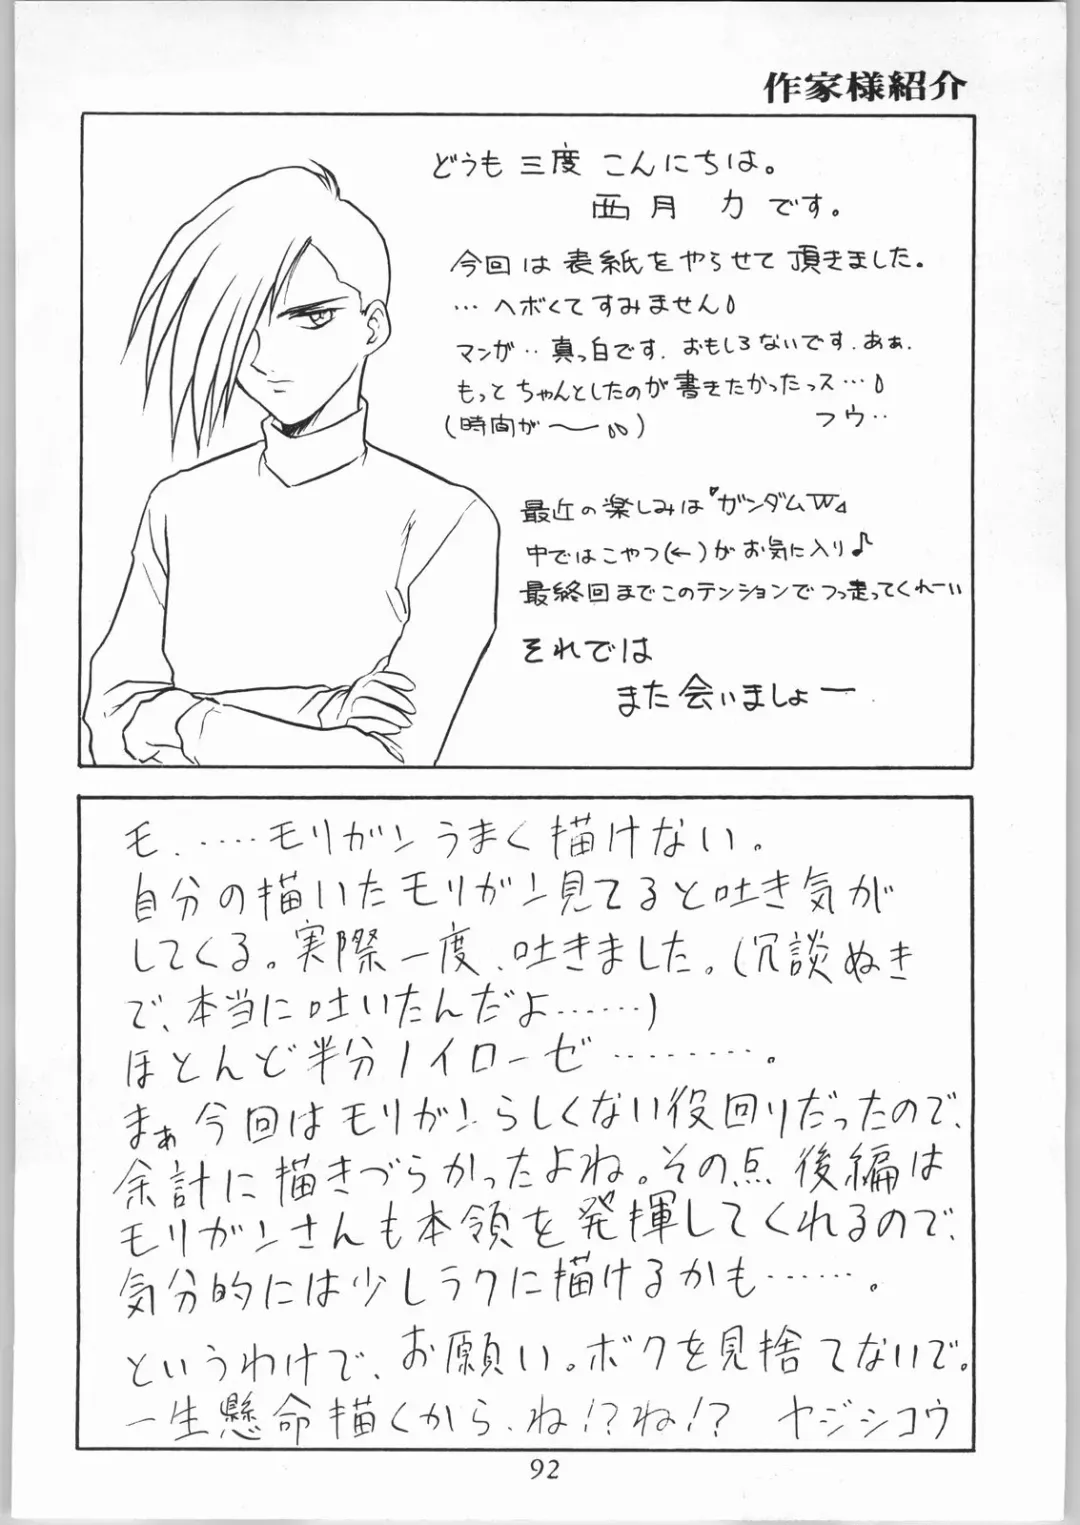 作家様紹介
どうも 三度 こんにちは。
西月 力です。
今回は 表紙をやらせて頂きました。
…ヘボくてすみません♪
マンガ‥真っ白です.おもしろないです.あぁ.
もっとちゃんとしたのが書きたかったっス…♪
(時間が〜〜♪♪)
フウ‥
最近の楽しみは『ガンダムW』
中ではこやつ(←)がお気に入り♪
最終回までこのテンションでつっ走ってくれーい
それでは
また会いましょー
モ.……モリガンうまく描けない。
自分の描いたモリガン見てると吐き気が
してくる。実際一度、吐きました。(冗談ぬき
で、本当に吐いたんだよ……)
ほとんど半分ノイローゼ………。
まぁ今回はモリガンらしくない役回りだったので、
余計に描きづらかったよね。その点 後編は
モリガンさんも本領を発揮してくれるので、
気分的には少しラクに描けるかも……。
というわけで、お願い。ボクを見捨てないで。
一生懸命描くから、ね!?ね!? ヤジシコウ
92